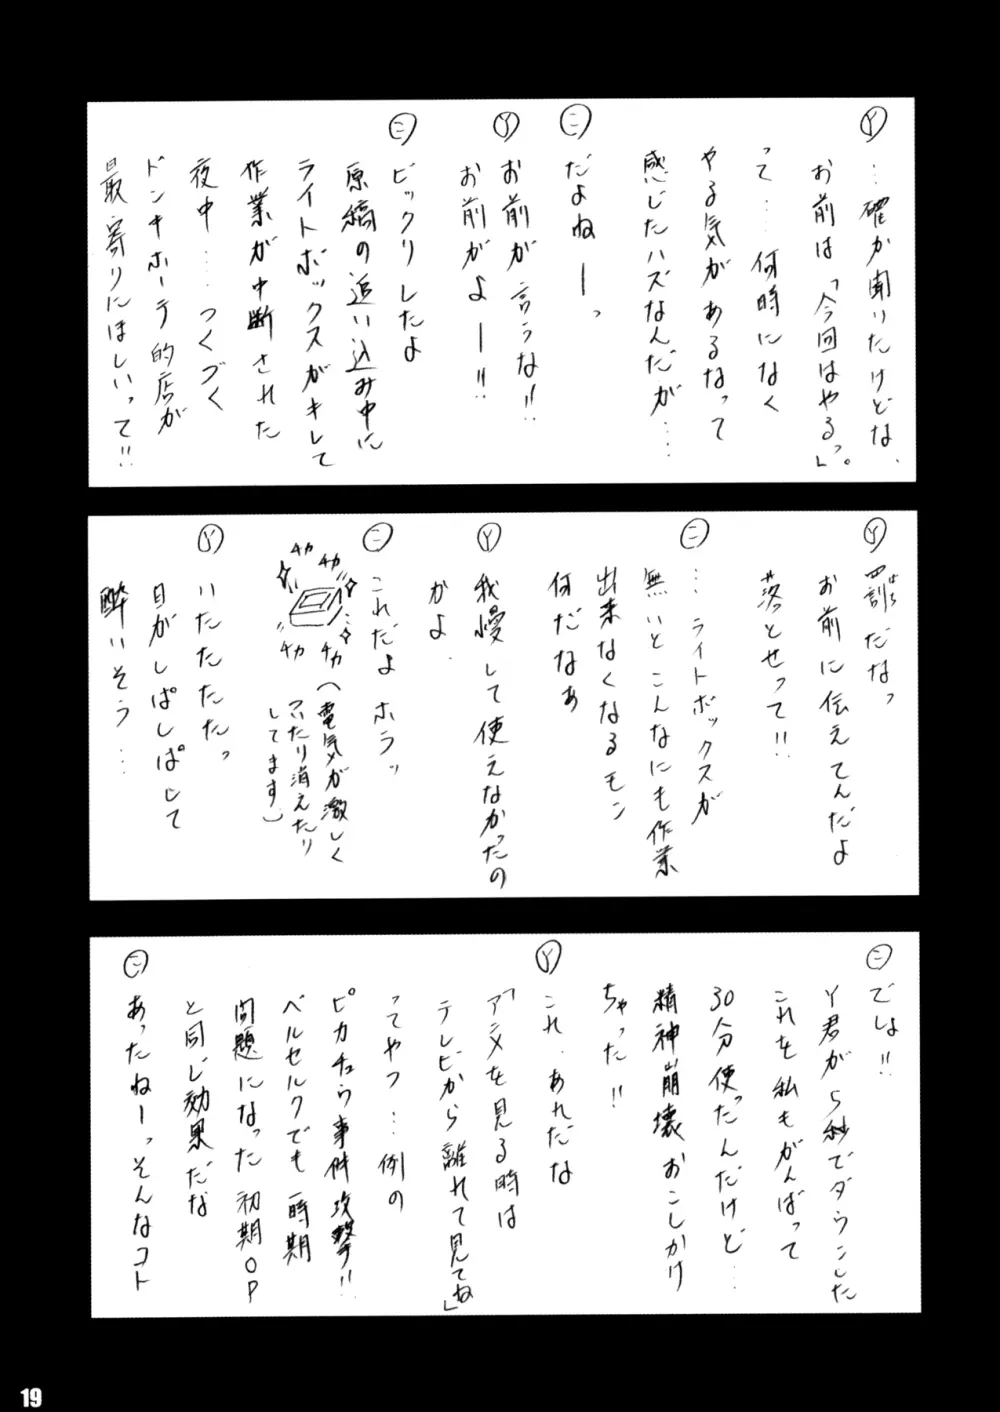 Ⓨ …確か聞いたけどな、
お前は「今回はやるっ」。
って…何時になく
やる気があるなって
感じたハズなんだが……
㊁ だよねーっ
Ⓨ お前が言うな!!
お前がよー!!
㊁ ビックリしたよ
原稿の追い込み中に
ライトボックスがキレて
作業が中断された
夜中…つくづく
ドンキホーテ的店が
最寄りにほしいって!!
Ⓨ 罰だなっ
ばち
お前に伝えてんだよ
落とせって!!
㊁ …ライトボックスが
無いとこんなにも作業
出来なくなるモン
何だなあ
Ⓨ 我慢して使えなかったの
かよ．
㊁ これだよ ホラッ
チカ
チカ
チカ
チカ
(電気が激しく
ついたり消えたり
してます)
Ⓨ いたたたたっ
目がしぱしぱして
酔いそう…
㊁ でしょ!!
Y君が5秒でダウンした
これを私もがんばって
30分使ったんだけど…
精神崩壊おこしかけ
ちゃった!!
Ⓨ これ、あれだな
「アニメを見る時は
テレビから離れて見てね」
ってやつ…例の
ピカチュウ事件攻撃!!
ベルセルクでも一時期
問題になった初期OP
と同じ効果だな
㊁ あったねーっそんなコト
19